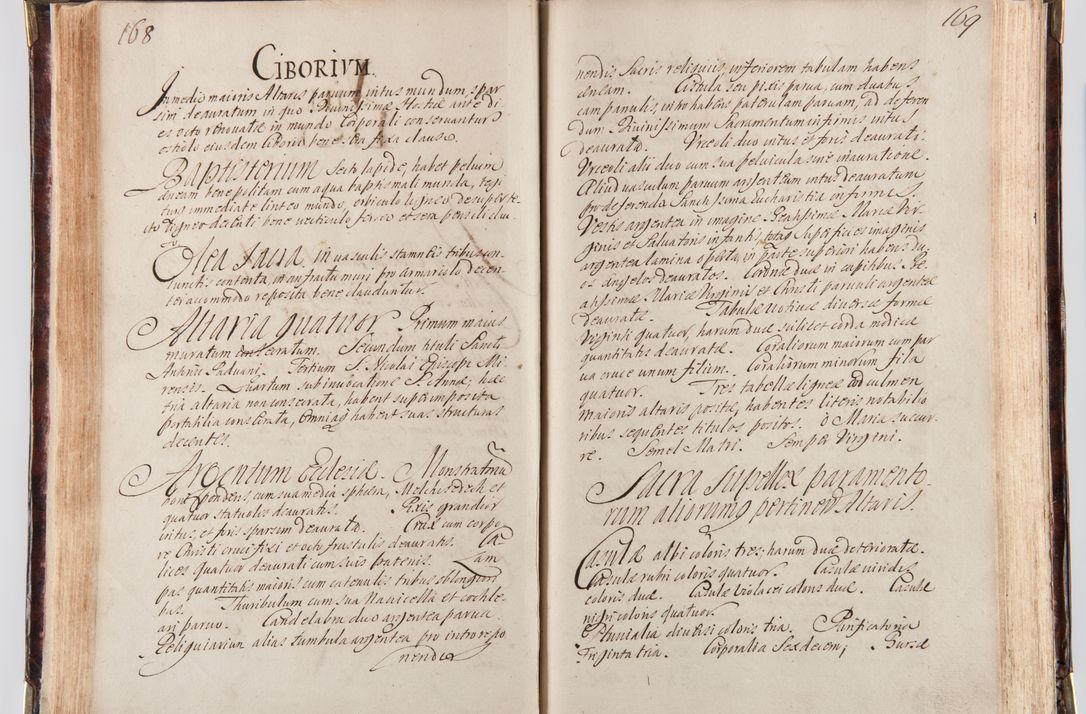 168
CIBORIVM.
In medio maioris Altaris parvum intus mundum, spar
sim deauratum in quo Divinissimæ Hostiæ ante di
es octo renovatæ in mundo Corporali conservantur
ostiolo eiusdem Ciborii bene sera fixa clauso.
Baptisterium Secto lapide, habet pelvim
æneam bene politam cum aqua baptismali munda, tegi
tur immediate linteo mundo, orbiculo ligneo desuper te
cto ligneo decenti bene vecticulo ferreo et sera pensili clu
Olea Sacra in vasculis stamneis tribus con
iunctis contenta, in anfractu muri pro armariolo decen
ter accommodo reposita bene clauduntur.
Altaria quatuor Primum maius
muratum consecratum. Secundum tituli Sancti
Antonii Paduani. Tertium S. Nicolai Episcopi Mi
rensis. Quartum sub invocatione S. Annæ; hæc
tria altaria non consecrata, habent superimposita
portatilia consecrata, Omniaq habent suas structuras
decentes.
Argentum Ecclesiæ. Monstratoriu
bone pendens, cum sua media sphæra, Melchisedech et
quatuor statuolis deauratis. Pixis grandior
intus, et foris sparsim deaurata. Crux cum corpo
re Christi crucifixi et octo frustulis deauratis. Ca
lices quatuor deaurati cum suis patenis. Lam
pas quantitatis maioris cum catenulis tribus oblongiori
bus. Thuribulum cum sua Navicella et cochle
ari parvo. Candelabra duo argentea parva
Reliquiarium alias Tumbula argentea pro intro repo
nendis
169
nendis Sacris reliquiis, inferiorem tabulam habens
æneam. Cistula seu pixis parva, cum duabus
campanulis, intro habens patenulam parvam, ad deferen
dum Divinissimum Sacramentum infirmis intus
deaurata. Vrceoli duo intus et foris deaurati.
Vrceoli alii duo cum sua pelvicula sine inauratione.
Aliud vasculum parvum argenteum intus deauratum
pro deferenda Sanctissima Eucharistia infirmis
Vestis argentea in imagine Beatissimæ Mariæ Vir
ginis et Salvatoris infantis, tota superficies imaginis
argentea lamina operta, in parte superiori habens du
os angelos deauratos. Coronæ duæ in capitibus Be
atissimæ Mariæ Virginis et Christi parvuli argenteæ
deauratæ. Tabulæ votivæ diversæ formæ
viginti quatuor, harum duæ scilicet corda modicæ
quantitatis deauratæ. Coraliorum maiorum cum par
va cruce unum filium. Coraliorum minorum fila
quatuor. Tres tabellæ ligneæ ad culmen
maioris altaris positæ, habentes literis notabilio
ribus sequentes titulos positos. O Maria succur
re. Semel Matri. Semper Virgini.
Sacra Supellex paramento
rum aliorumq pertinen Altaris.
Casulæ albi coloris tres; harum duæ deterioratæ.
Casulæ rubri coloris quatuor. Casulæ viridis
coloris duæ. Casulæ violacei coloris duæ. Casulæ
nigri coloris quatuor.
Pluvialia diversi coloris tria. Purificatoria
Triginta tria. Corporalia Sexdecem; Bursæ